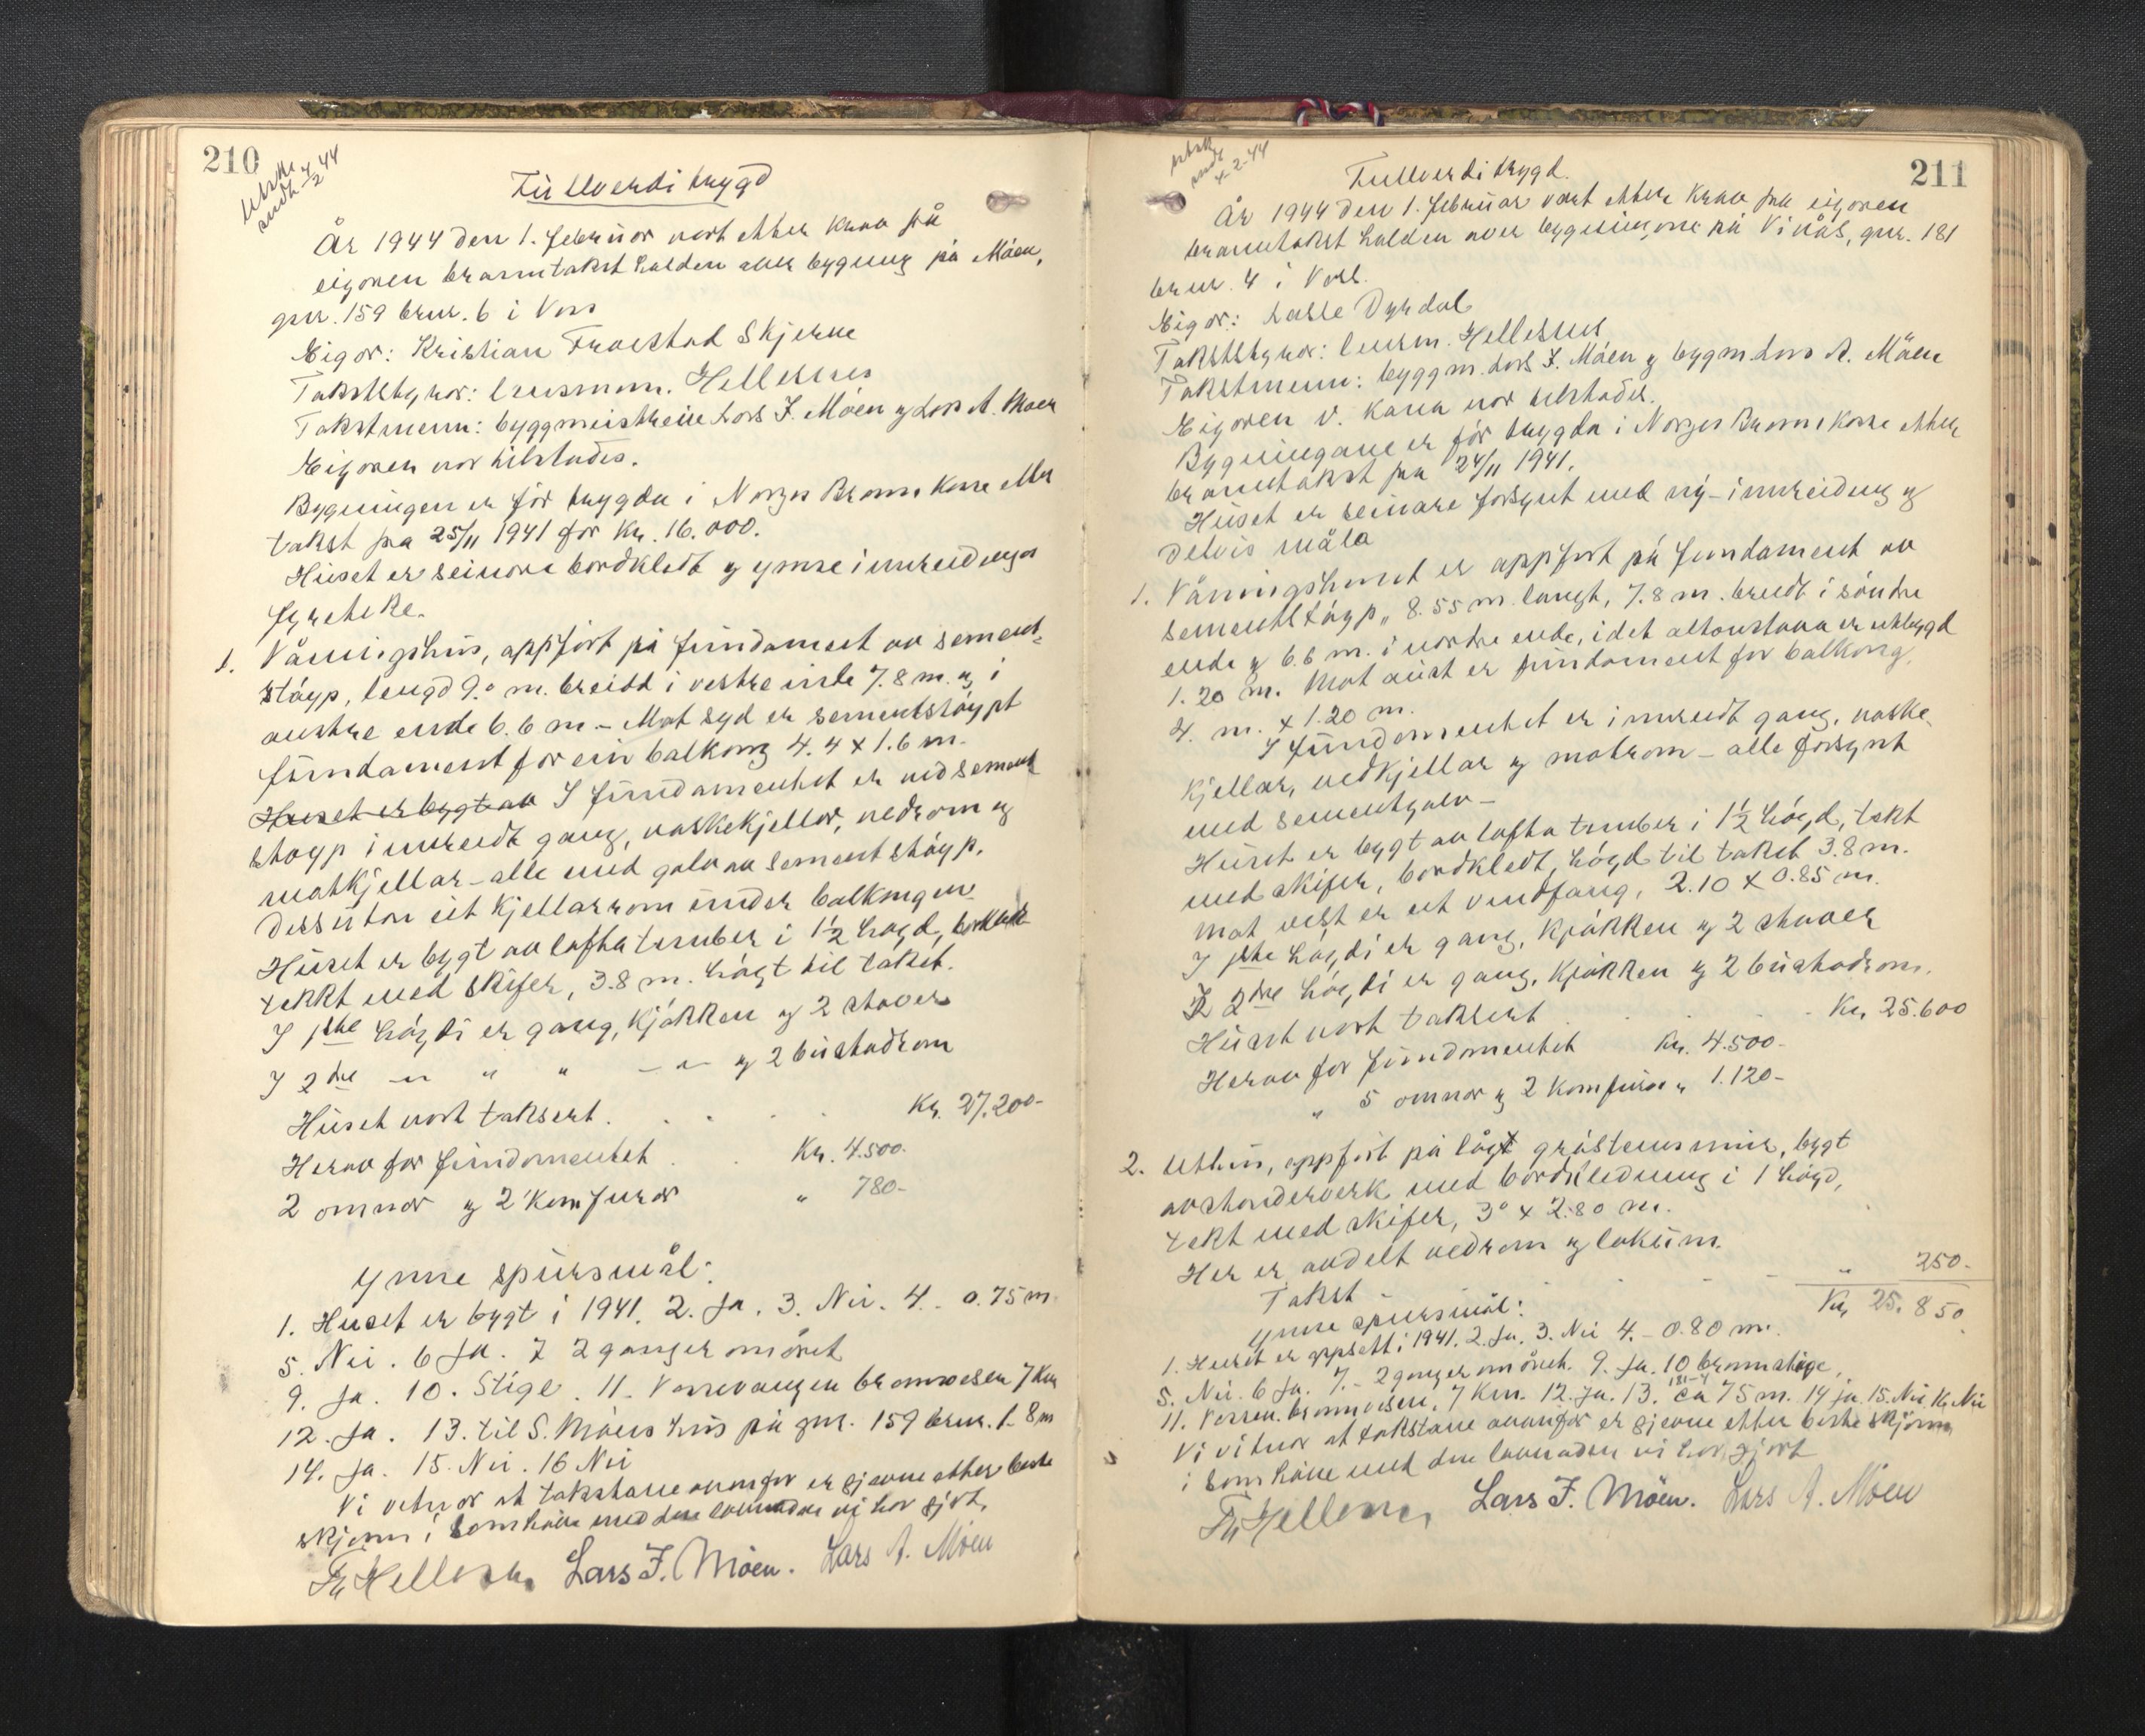 210
Utskr.
sendt 4/2 44
Fullverdi trygd
År 1944 den 1. februar vart etter krav frå
eigaren branntakst halden over bygning på Móen,
gnr. 159 brnr. 6 i Voss
Eigar: Kristian Skjerve
Takststyrar: lensmann. Hellesnes
Takstmenn: byggmeistrane Lars J. Móen og Lars A. Móen
Eigaren var tilstades.
Bygningen er før trygda i Norges Brannkasse etter
takst fra 25/11 1941 for Kr. 16.000.
Huset er seinare bordkledt og ymse innreidningar
fyreteke.
1. Våningshus, appført på fundament av sement-
støyp, lengd 9.0 m. breidd i vestre ende 7.8 m. og i
austre ende 6.6 m – Mot syd er sementstøypt
fundament for ein balkong 4.4 x 1.6 m.
Huset er bygt av I fundamentet er ved sement
støyp innreidt gang, vaskekjellar, vedrom og
matkjellar – alle med golv av sementstøyp.
Dessutan eit kjellarrom under balkongen.
Huset er bygt av lafta tømber i 1½ høgd,
tekkt med skifer, 3.8 m. høgt til taket.
I 1ste høgdi er gang, kjøkken og 2 stover
I 2dre – " " " – " – og 2 bustadrom
Huset vart taksert . . . . Kr. 27.200-
Herav for fundamentet . . Kr. 4.500.
2 omnar og 2 komfurar " 780-
Ymse spursmål:
1. Huset er bygt i 1941. 2. Ja. 3. Nei. 4. – 0.75 m.
5. Nei. 6 Ja. 7 2 ganger om året
9. Ja. 10. Stige. 11. Vossevangen brannvesen 7 km
12. Ja. 13. til S. Móens hus på gnr. 159 brnr. 1 8 m
14. Ja. 15. Nei. 16 Nei
Vi vitnar at takstane ovanfor er gjevne etter beste
skjønn i samhøve med den lovnaden vi har gjort.
Hellesnes Lars J. Móen. Lars A. Móen
211
Utskr.
sendt
4-2-44
Fullverdi trygd.
År 1944 den 1. februar vart etter krav fra eigaren
branntakst halden over bygningane på Vinås, gnr. 181
brnr. 4 i Voss.
Eigar: Lasse Dyrdal
Takststyrar: lensm. Hellesnes
Takstmenn: byggm. Lars J. Móen og bygm Lars A. Móen
Eigaren v. kona var tilstades.
Bygningane er før trygda i Norges Brannkasse etter
branntakst fra 24/11 1941.
Huset er seinare forsynt med ny-innreidning og
delvis måla
1. Våningshuset er appført på fundament av
sementstøyp, 8.55 m. langt, 7.8 m. breidt i søndre
ende og 6.6 m. i nordre ende, idet altanstova er utbygd
1.20 m. Mot aust er fundament for balkong,
4. m. x 1.20 m.
I fundamentet er innreidt gang, vaske-
kjellar, vedkjellar og matrom – alle forsynt
med sementgolv –
Huset er bygt av lafta tømber i 1½ høgd, tekt
med skifer, bordkledt, høgd til taket 3.8 m.
Mot vest er eit vindfang, 2.10 x 0.85 m.
I 1ste høgdi er gang, kjøkken og 2 stover
I 2dre høgdi er gang, kjøkken og 2 bustadrom.
Huset vart taksert . . . Kr. 25.600
Herav for fundamentet Kr. 4.500-
" 5 omnar og 2 komfurar " 1.120-
2. Uthus, appført på lågt gråsteinsmur, bygt
av stenderverk med bordkledning i 1 høgd,
tekt med skifer, 3.0 x 2.80 m.
Her er avdelt vedrom og lokum.
Takst . . . . " 250.
Kr. 25.850
Ymse spursmål:
1. Huset er appsett i 1941. 2. Ja. 3. Nei 4. – 0.80 m.
5. Nei. 6 Ja. 7. – 2 ganger om året. 9. Ja. 10 brannstige,
11. Vossev. brannvesen, 7 km. 12. Ja. 13. 181-4 ca 75 m. 14 ja. 15. Nei. 16 Nei
Vi vitnar at takstane ovanfor er gjevne etter beste skjønn,
i samhøve med den lovnaden vi har gjort
Hellesnes Lars J. Móen. Lars A. Móen